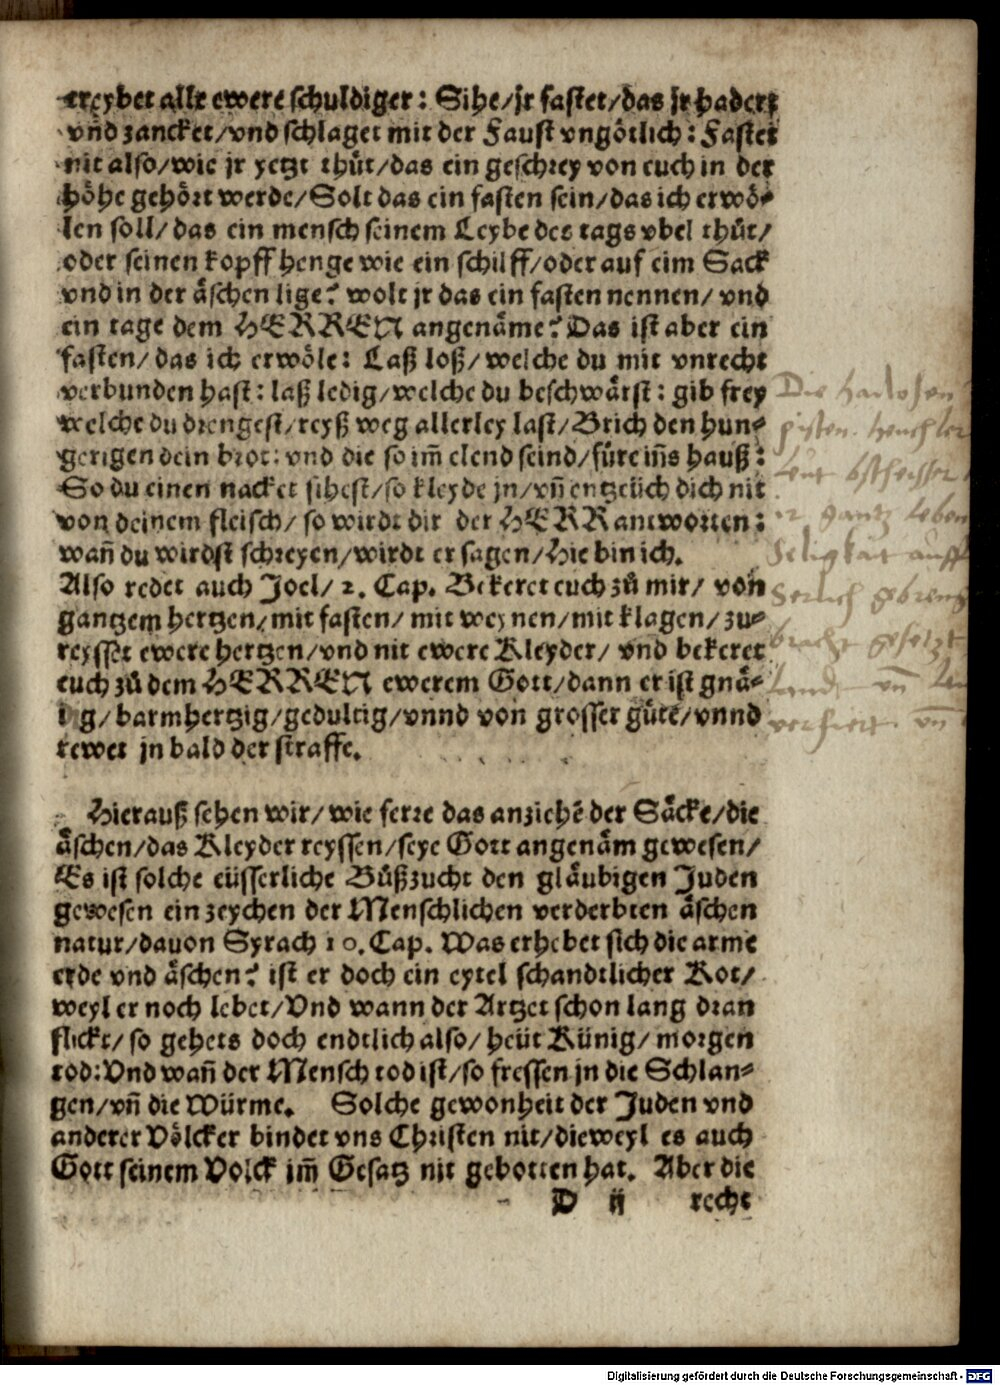 treybet alle ewere schuldiger: Sihe/jr fastet/das jr hadert
vnd zancket/vnd schlaget mit der Faust vngötlich: Fastet
nit also/wie jr yetzt thüt/das ein geschrey von euch in der
höhe gehört werde/Solt das ein fasten sein/das ich erwö⸗
len soll/das ein mensch seinem Leybe des tags vbel thüt/
oder seinen kopff henge wie ein schilff/oder auf eim Sack
vnd in der äschen lige? wolt jr das ein fasten nennen/ vnd
ein tage dem HERREN angenäme? Das ist aber ein
fasten/das ich erwöle: Laß loß/welche du mit vnrecht
verbunden hast: laß ledig/welche du beschwärst: gib frey
welche du drengest/reyß weg allerley last/Brich den hun⸗
gerigen dein brot: vnd die so im̃ elend seind/füre iñs hauß:
So du einen nacket sihest/so kleyde jn/vñ entzeüch dich nit
von deinem fleisch/ so wirdt dir der HERR antworten:
wañ du wirdst schreyen/wirdt er sagen/Hie bin ich.
Also redet auch Joel/ 2. Cap. Bekeret euch zů mir/ von
gantzem hertzen/mit fasten/ mit weynen/mit klagen/ zu⸗
reysset ewere hertzen/vnd nit ewere Kleyder/ vnd bekeret
euch zů dem HERREN ewerem Gott/dann er ist gnä⸗
dig/barmhertzig/gedultig/vnnd von grosser güte/vnnd
rewet jn bald der straffe.
Hierauß sehen wir/wie ferre das anziehẽ der Säcke/die
äschen/das Kleyder reyssen/seye Gott angenäm gewesen/
Es ist solche eüsserliche Bůßzucht den gläubigen Juden
gewesen ein zeychen der Menschlichen verderbten äschen
natur/dauon Syrach 10. Cap. Was erhebet sich die arme
erde vnd äschen? ist er doch ein eytel schandtlicher Kot/
weyl er noch lebet/Vnd wann der Artzet schon lang dran
flickt/so gehets doch endtlich also/heüt Künig/morgen
tod: Vnd wañ der Mensch tod ist/so fressen jn die Schlan⸗
gen/vñ die Würme. Solche gewonheit der Juden vnd
anderer Völcker bindet vns Christen nit/dieweyl es auch
Gott seinem Volck im̃ Gesatz nit gebotten hat. Aber die
D ij recht
Die
gantz leben
Seligkait auff
gesetzt
Land vñ
verfiert vñ
Digitalisierung gefördert durch die Deutsche Forschungsgemeinschaft - DFG